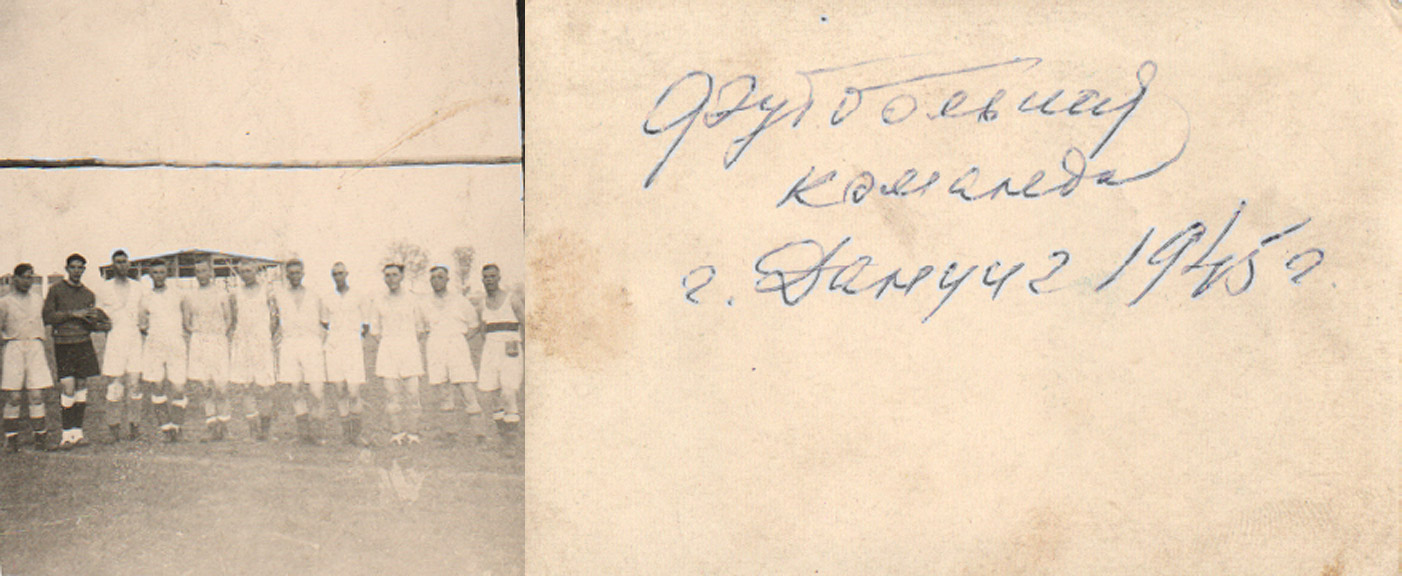 Футбольная
команда
г. Данциг 1945 г.